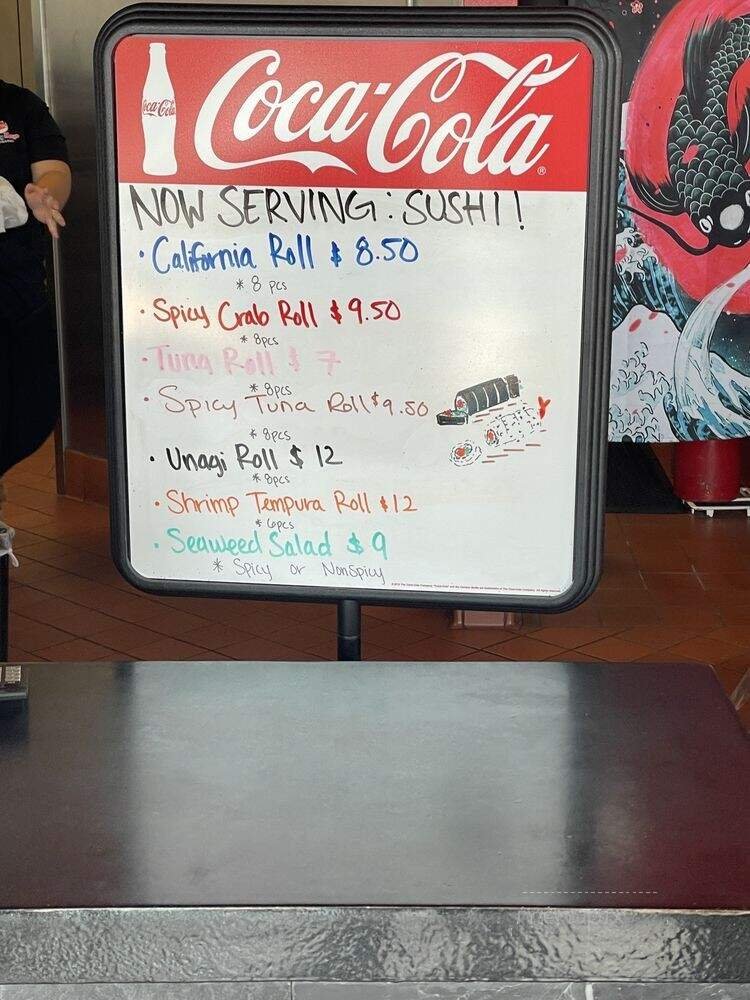 Coca-Cola
Coca-Cola®
NOW SERVING: SUSHI!
· California Roll $ 8.50
* 8 pcs
· Spicy Crab Roll $9.50
* 8pcs
· Tuna Roll $ 7
* 8pcs
· Spicy Tuna Roll $9.50
* 8pcs
· Unagi Roll $ 12
* 8pcs
· Shrimp Tempura Roll $12
* 6pcs
· Seaweed Salad $ 9
* Spicy or NonSpicy